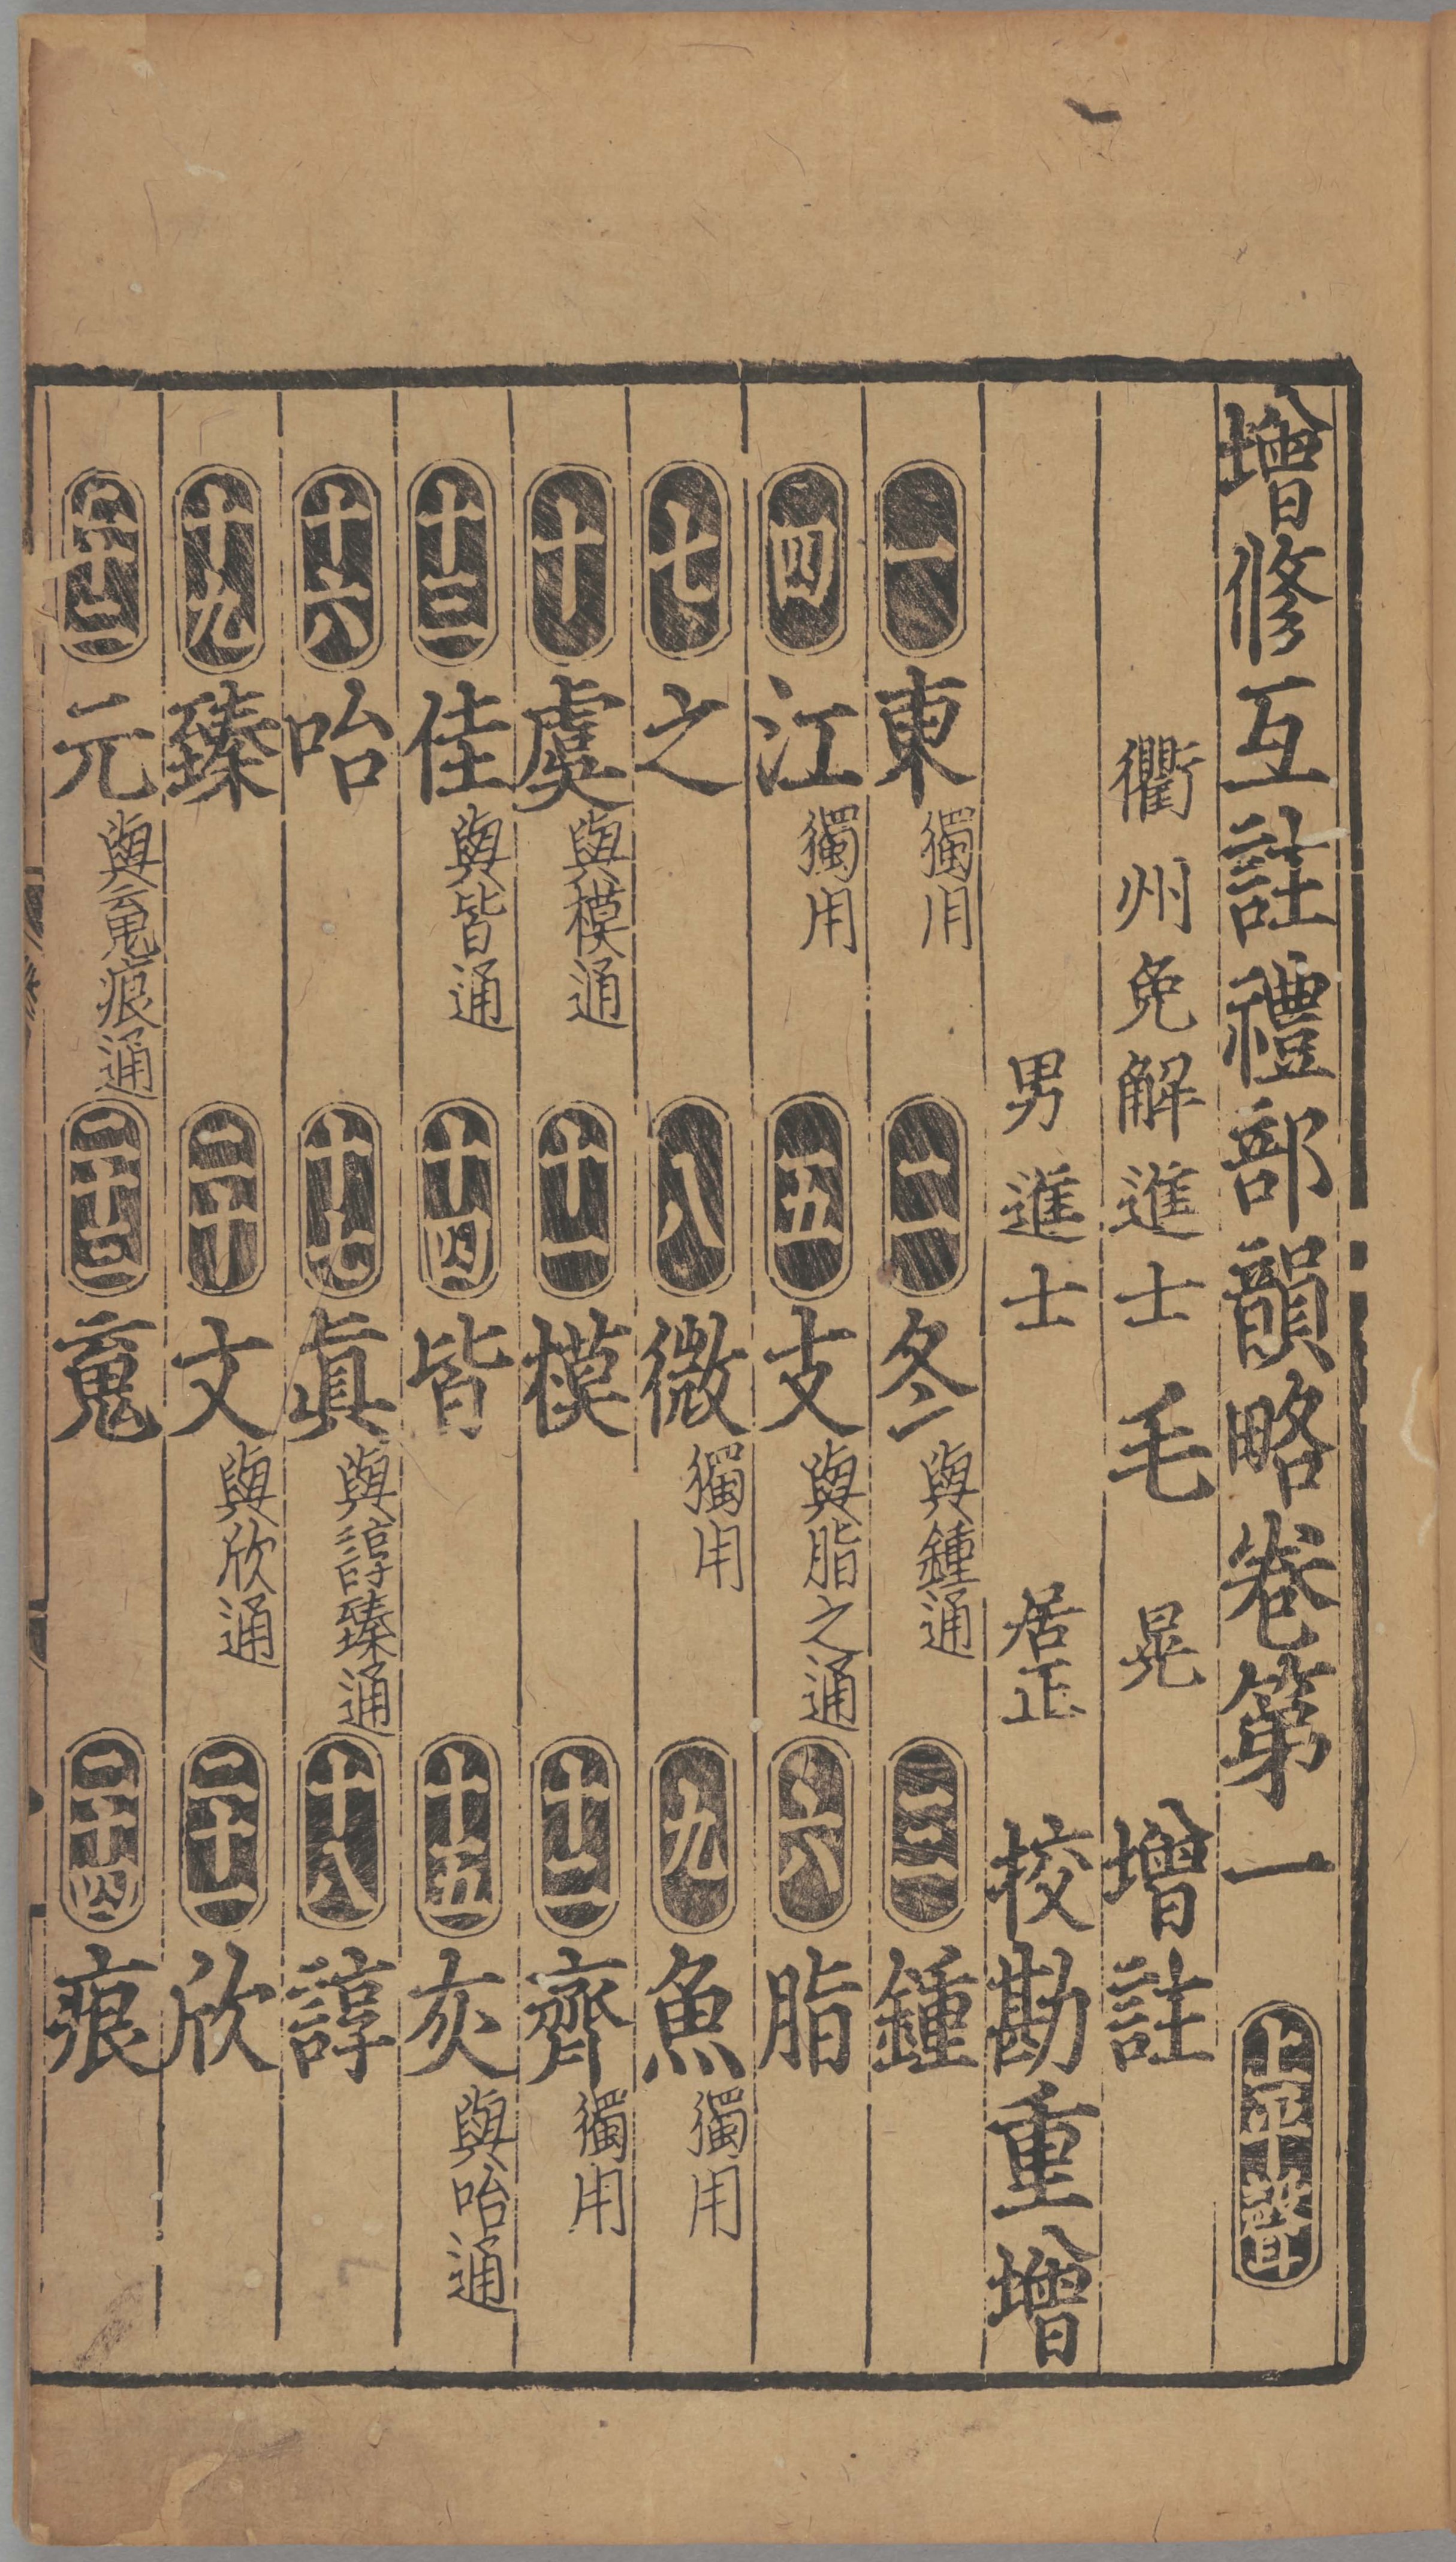 增修互註禮部韻略卷第一 上平聲
衢州免解進士毛晃增註
男進士居正校勘重增
一東獨用 二冬與鍾通 三鍾
四江獨用 五支與脂之通 六脂
七之 八微獨用 九魚獨用
十虞與模通 十一模 十二齊獨用
十三佳與皆通 十四皆 十五灰與咍通
十六咍 十七眞與諄臻通 十八諄
十九臻 二十文與欣通 二十一欣
二十二元與䰟痕通 二十三䰟 二十四痕